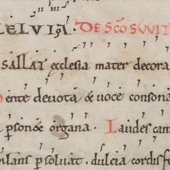 ELVIA. DE SCO SWIT
SALLAT ecclesia mater decora
ente deuota & uoce consona
psone organa. Laudes can
ilans psoluat. dulcia cordis